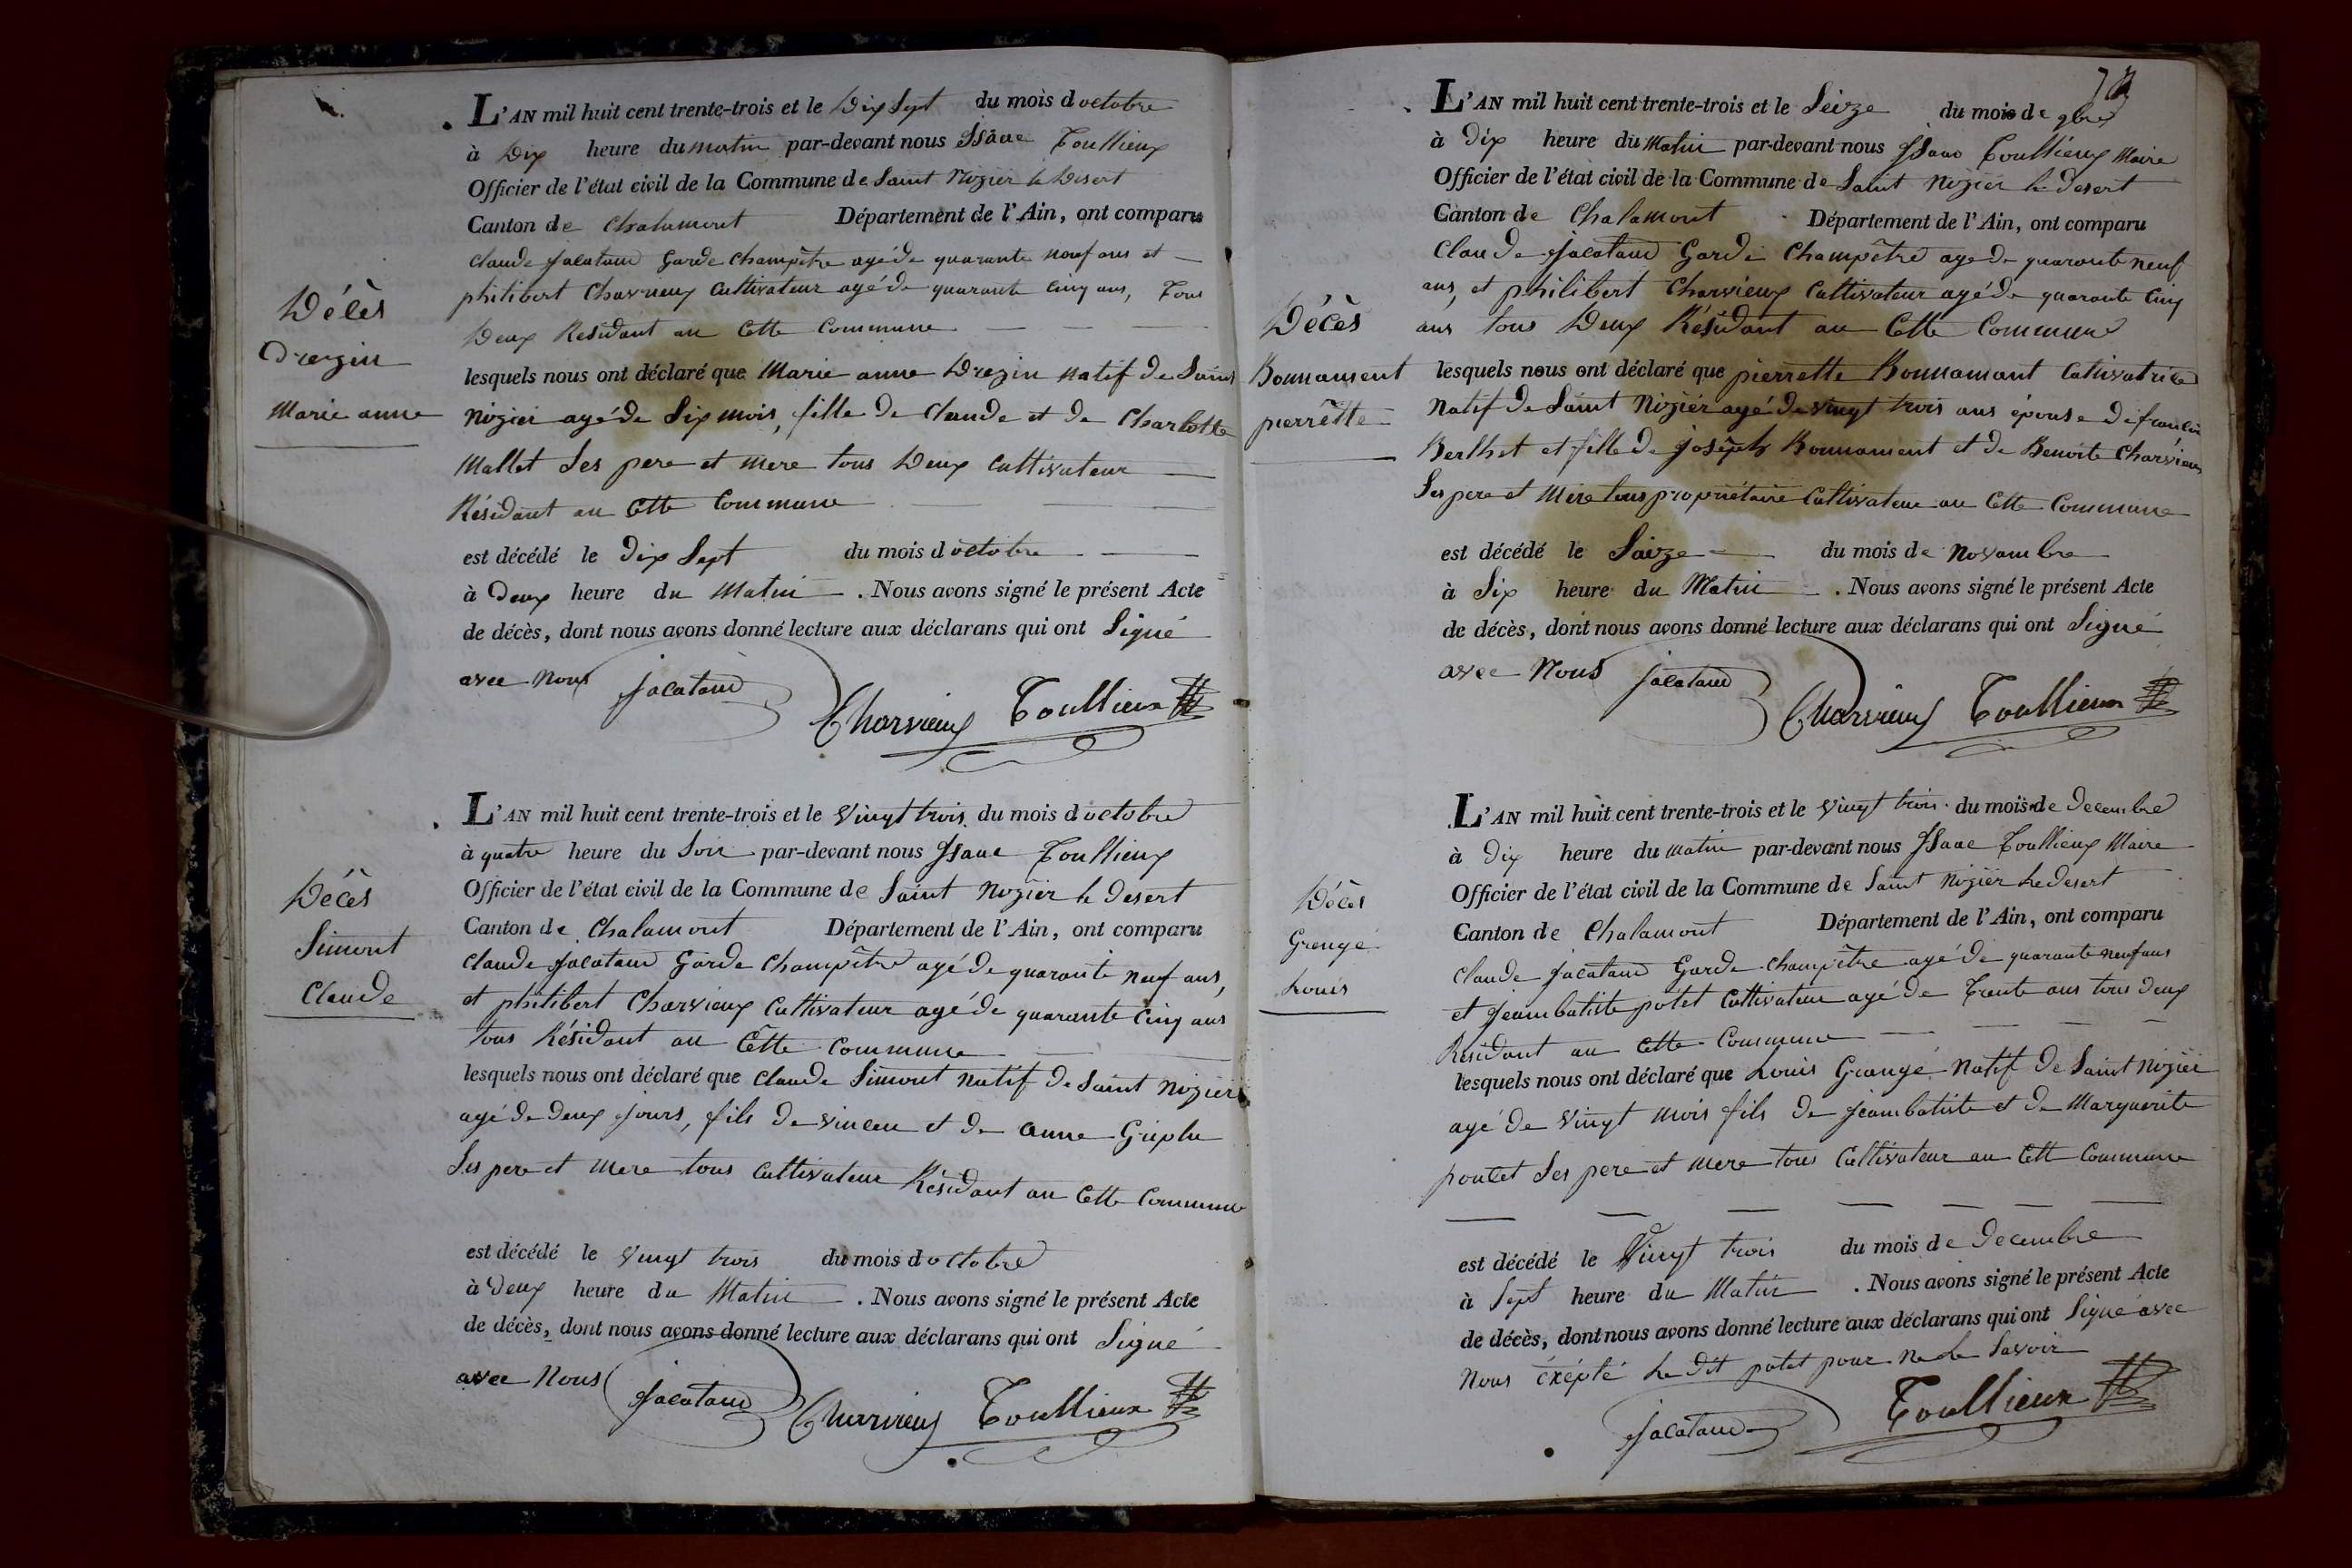 Décès
Drezin
Marie anne
L'AN mil huit cent trente-trois et le Dix Sept du mois d octobre
à Dix heure du matin par-devant nous Isaac Toullieux
Officier de l'état civil de la Commune de Saint Nizier le Desert
Canton de Chalamont Département de l'Ain, ont comparu
Claude Jacataud Garde Champêtre agé de quarante neuf ans et
philibert Charvieux Cultivateur agé de quarante Cinq ans, Tous
Deux Résidant au Cette Commune
lesquels nous ont déclaré que Marie anne Drezin natif de Saint
Nizier agé de Six mois, fille de Claude et de Charlotte
Mallet Ses pere et mere tous Deux Cultivateur
Résidant au Cette Commune
est décédé le dix Sept du mois d octobre
à deux heure du Matin . Nous avons signé le présent Acte
de décès, dont nous avons donné lecture aux déclarans qui ont Signé
avec Nous Jacataud Charvieux Toullieux
Décès
Simont
Claude
L'AN mil huit cent trente-trois et le vingt trois du mois d octobre
à quatre heure du Soir par-devant nous Isaac Toullieux
Officier de l'état civil de la Commune de Saint Nizier le Desert
Canton de Chalamont Département de l'Ain, ont comparu
Claude Jacataud Garde Champêtre agé de quarante neuf ans,
et philibert Charvieux Cultivateur agé de quarante Cinq ans
tous Résidant au Cette Commune
lesquels nous ont déclaré que Claude Simont natif de Saint Nizier
agé de deux Jours, fils de et de anne
Ses pere et mere tous Cultivateur Résidant au Cette Commune
est décédé le vingt trois du mois d octobre
à deux heure du Matin . Nous avons signé le présent Acte
de décès, dont nous avons donné lecture aux déclarans qui ont Signé
avec Nous Jacataud Charvieux Toullieux
Décès
Bonnament
pierrette
L'AN mil huit cent trente-trois et le Seize du mois de 9bre
à dix heure du Matin par-devant nous Isaac Toullieux Maire
Officier de l'état civil de la Commune de Saint Nizier le Desert
Canton de Chalamont Département de l'Ain, ont comparu
Claude Jacataud Garde Champêtre agé de quarante neuf
ans, et philibert Charvieux Cultivateur agé de quarante Cinq
ans tous Deux Résidant au Cette Commune
lesquels nous ont déclaré que pierrette Bonnamant Cultivatrice
Natif de Saint Nizier agé de vingt trois ans épouse de
Berthet et fille de Joseph Bonnament et de Benoite Charvieux
Ses pere et Mere tous propriétaire Cultivateur au Cette Commune
est décédé le Saize du mois de Novambre
à Six heure du Matin . Nous avons signé le présent Acte
de décès, dont nous avons donné lecture aux déclarans qui ont Signé
avec Nous Jacataud Charvieux Toullieux
Décès
Grangé
Louis
L'AN mil huit cent trente-trois et le vingt trois du mois de Decembre
à dix heure du matin par-devant nous Isaac Toullieux Maire
Officier de l'état civil de la Commune de Saint Nizier le desert
Canton de Chalamont Département de l'Ain, ont comparu
Claude Jacataud Garde Champêtre agé de quarante neuf ans
et Jeambatiste potet Cultivateur agé de Trente ans tous deux
Résidant au Cette Commune
lesquels nous ont déclaré que Louis Grangé Natif de Saint Nizier
agé de vingt mois fils de Jeambatiste et de Marguerite
poncet Ses pere et mere tous Cultivateur au Cette Commune
est décédé le Vingt trois du mois de Decembre
à Sept heure du Matin . Nous avons signé le présent Acte
de décès, dont nous avons donné lecture aux déclarans qui ont Signé avec
Nous éxépté le dit potet pour ne le Savoir
Jacataud Toullieux